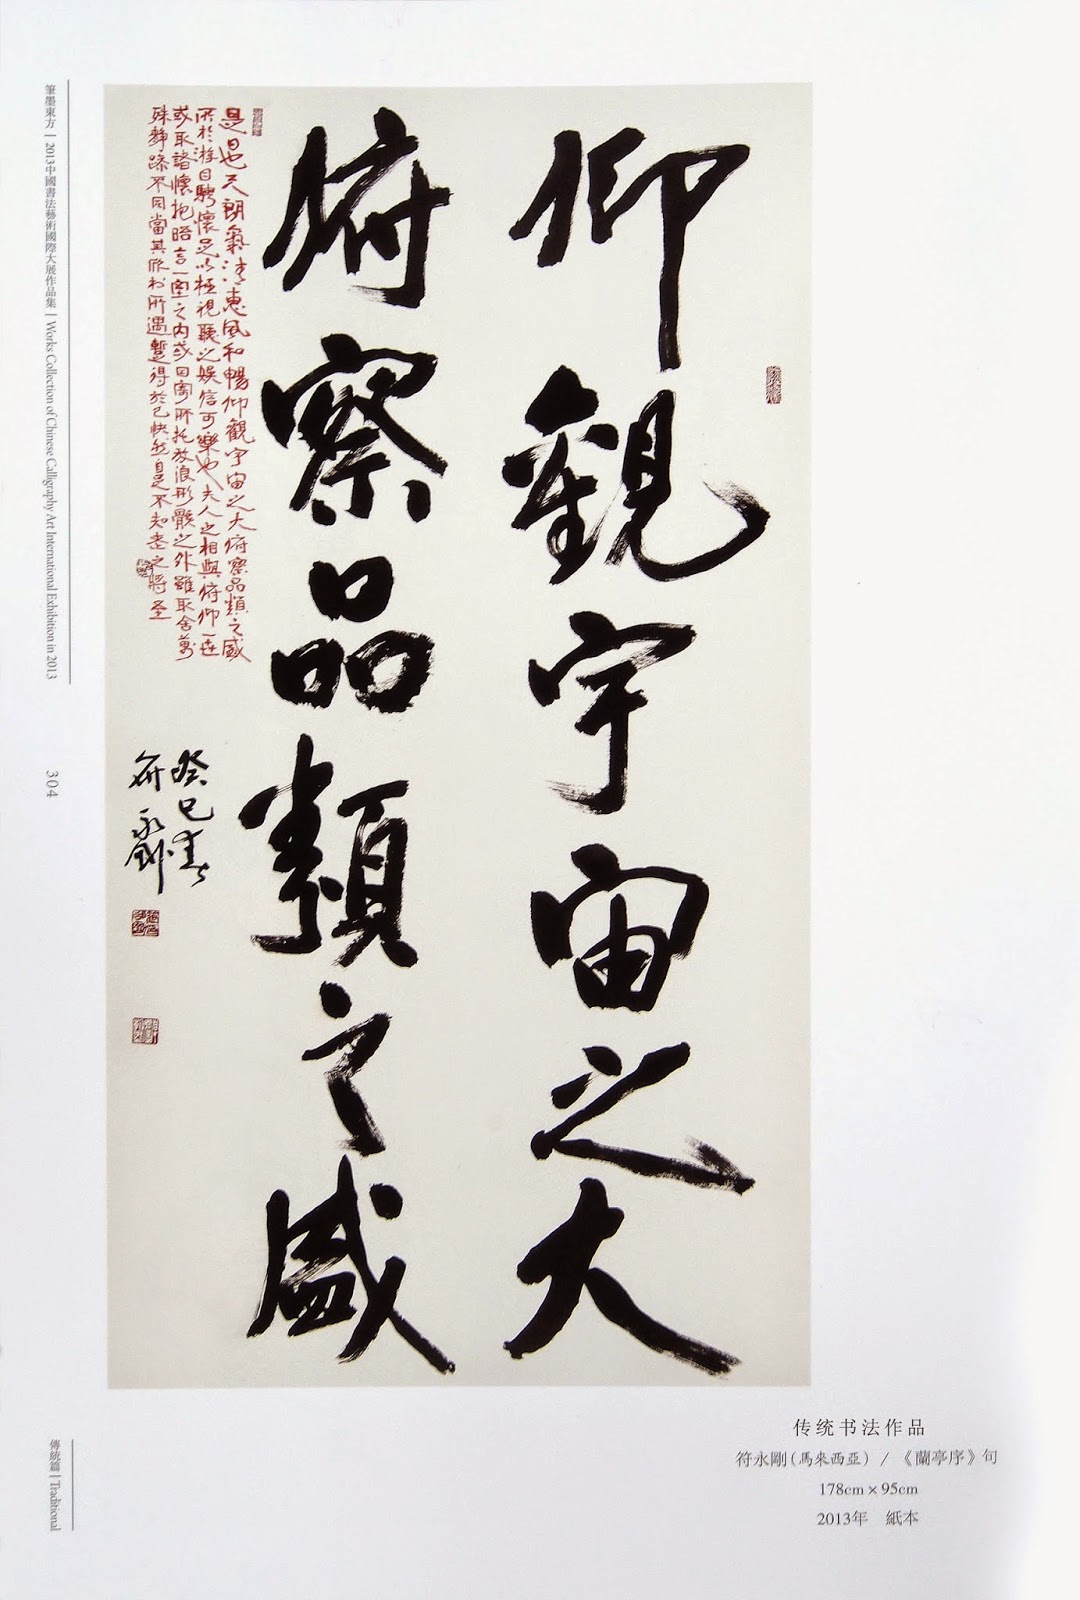 仰觀宇宙之大
俯察品類之盛
是日也天朗氣清惠風和暢仰觀宇宙之大俯察品類之盛
所以游目騁懷足以極視聽之娛信可樂也夫人之相與俯仰一世
或取諸懷抱晤言一室之內或因寄所托放浪形骸之外雖取舍萬
殊靜躁不同當其欣於所遇暫得於己快然自足不知老之將至
癸巳春
符永剛
筆墨東方 | 2013中國書法藝術國際大展作品集 | Works Collection of Chinese Calligraphy Art International Exhibition in 2013
304
傳統篇 | Traditional
传统书法作品
符永剛(馬來西亞) / 《蘭亭序》句
178cm × 95cm
2013年 紙本